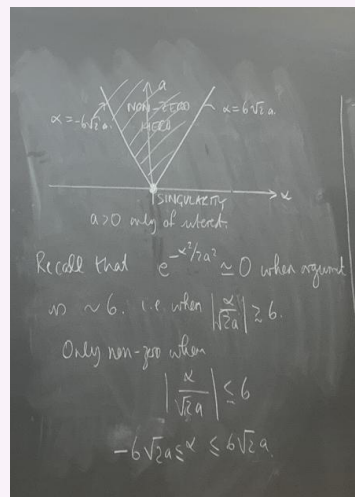 a
NON-ZERO
HERE
α=-6√2a.
α=6√2a.
x
SINGULARITY
a>0 only of interest.
Recall that e^{-x²/2a²} ≃ 0 when argument
is ~6. i.e. when |x/√2a| ≳ 6.
Only non-zero when
|x/√2a| ≲ 6
-6√2a ≲ x ≲ 6√2a.